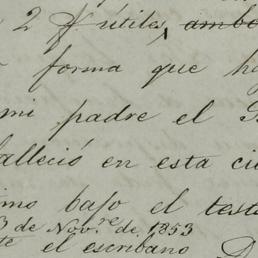 2 f útiles, ambo
forma que ha
mi padre el
falleció en esta ciu
imo bajo el test
3 de Novre de 1853
te el escribano D